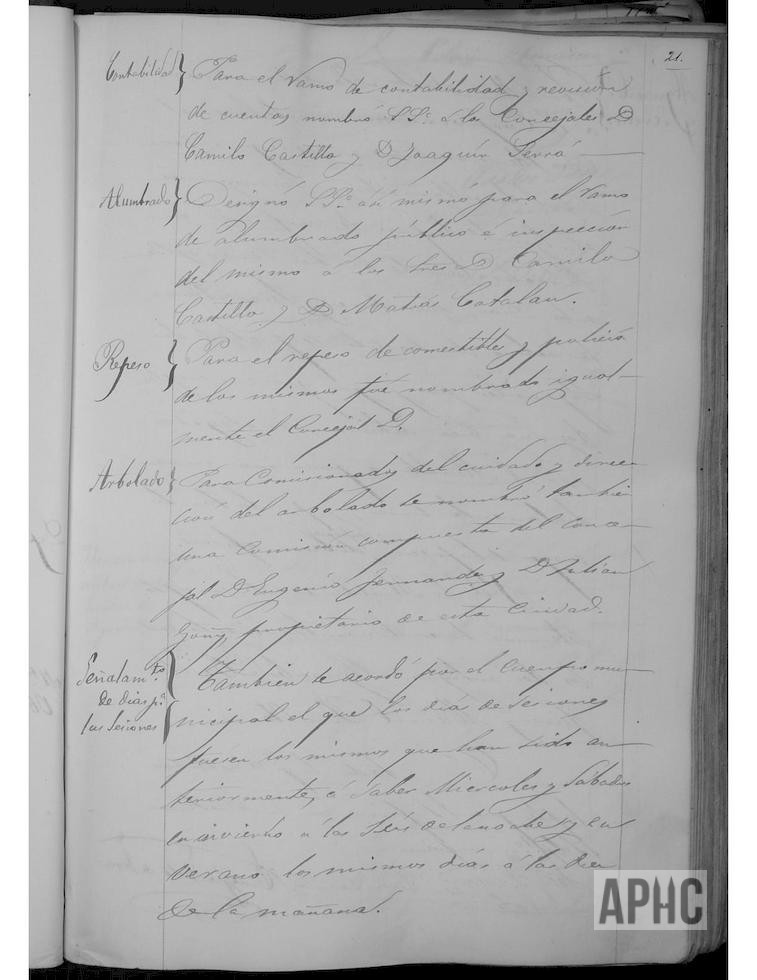 21.
Contabilidad} Para el ramo de contabilidad y revision
de cuentas nombró SSª á los Concejales D
Camilo Castillo y D Joaquin Serrá
Alumbrado} Designó SSª asi mismo para el ramo
de alumbrado publico é inspección
del mismo á los Sres D Camilo
Castillo y D Matias Catalan.
Repeso} Para el repeso de comestibles y policia
de los mismos fue nombrado igual-
mente el Concejal D.
Arbolado} Para Comisionados del cuidado y direc-
ción del arbolado se nombró tambien
una Comisión compuesta del Conce-
jal D Eugenio Fernandez y D Julian
Goñy propietario de esta Ciudad.
Señalam.to
de dias p.a
las Sesiones} Tambien se acordó por el Cuerpo mu-
nicipal el que los dias de sesiones
fuesen los mismos que han sido an-
teriormente, á saber Miercoles y Sabados
en invierno á las Seis de la noche y en
verano los mismos dias á las diez
de la mañana.
APHC